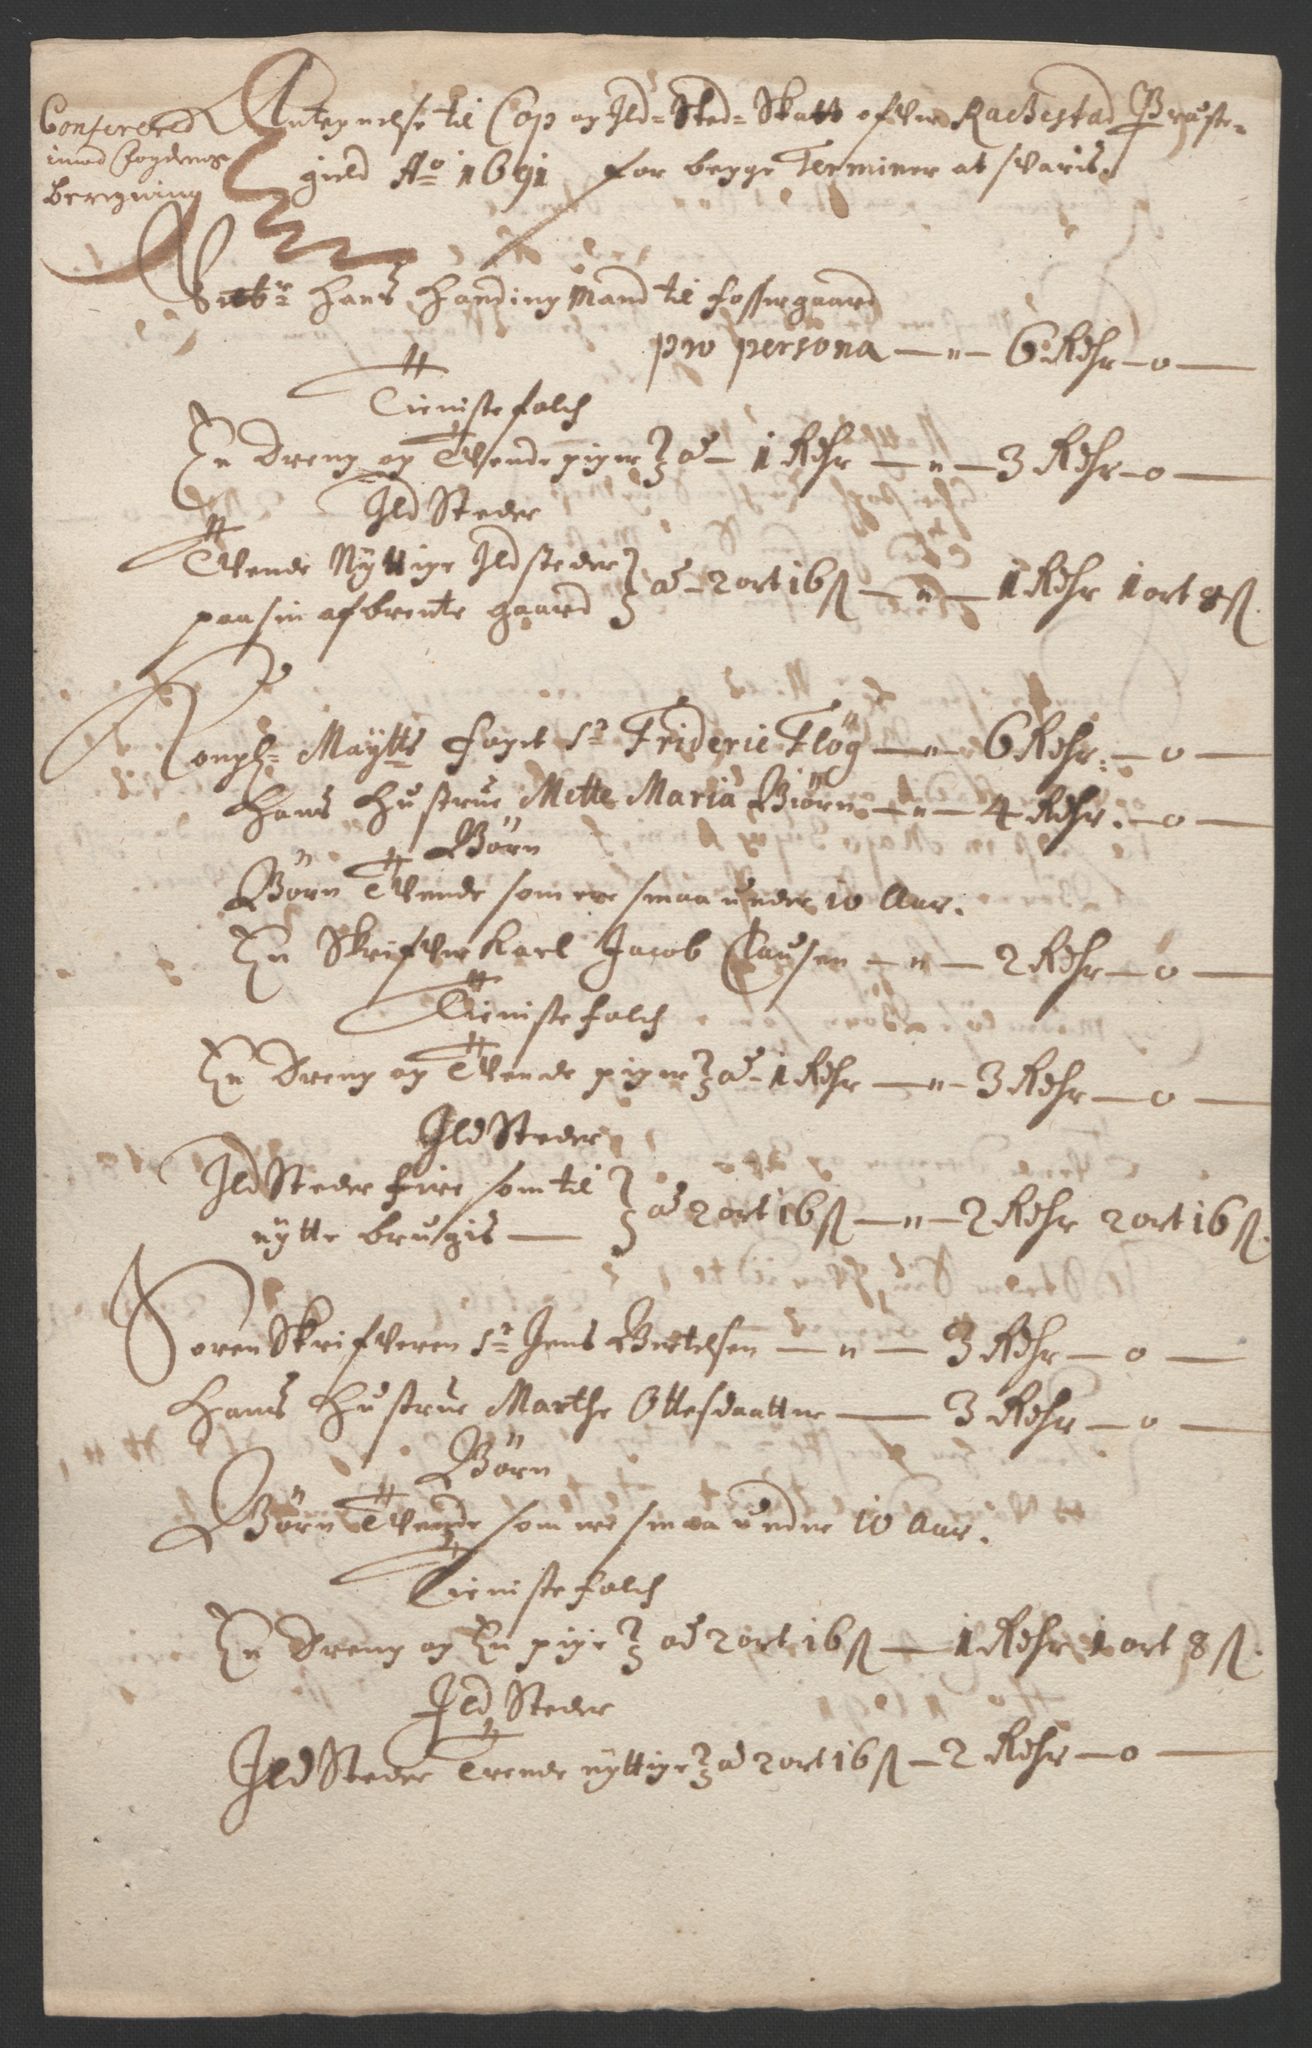 Confereret
imod Fogdens
beregning
Antegnelse til Cop og Ild-Sted-Skatt ofver Rackestad Præste-
gield Ao 1691 for begge Terminer at svaris.
Hans Handingmand til Fossergaard
pro persona — " — 6 Rdhr — o —
Tienistefolch
En Dreng og Tvende piger ad — 1 Rdhr — " — 3 Rdhr — o —
Ild Steder
Tvende Nyttige Ildsteder
paa sin afbrente gaard ad — 2 ort 16 ß — " — 1 Rdhr 1 ort 8 ß.
Kongl: Maÿtts foget Sr Frideric Flög — " — 6 Rdhr: — o —
Hans Hustrue Mette Maria Biørn — " — 4 Rdhr: — o —
Börn
Börn Tvende som ere smaa under 10 Aar.
En Skrifverkarl Jacob Clausen — " — 2 Rdhr — o —
Tienistefolch
En Dreng og Tvende piger ad — 1 Rdhr — " — 3 Rdhr — o —
Ild Steder
Ild Steder fire som til
nytte brugis — ad 2 ort 16 ß — " — 2 Rdhr 2 ort 16 ß.
Soren Skrifveren Sr Jens Bertelsen — " — 3 Rdhr — o —
Hans Hustrue Marthe Ottesdaatter — 3 Rdhr — o —
Börn
Börn Tvende som ere smaa under 10 Aar.
Tienistefolch
En Dreng og En pige ad 2 ort 16 ß — 1 Rdhr 1 ort 8 ß.
Ild Steder
Ild Steder Trende nyttige ad 2 ort 16 ß — 2 Rdhr — o —